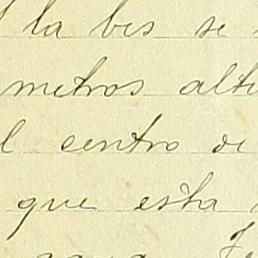 la bis se
metros alti
l centro de
que esta